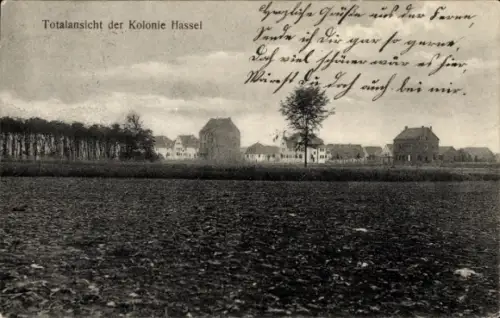 Totalansicht der Kolonie Hassel
Herzliche Grüße aus der Ferne,
Sende ich dir gar so gerne,
Doch viel schöner wär es hier,
Wärest du doch auch bei mir.